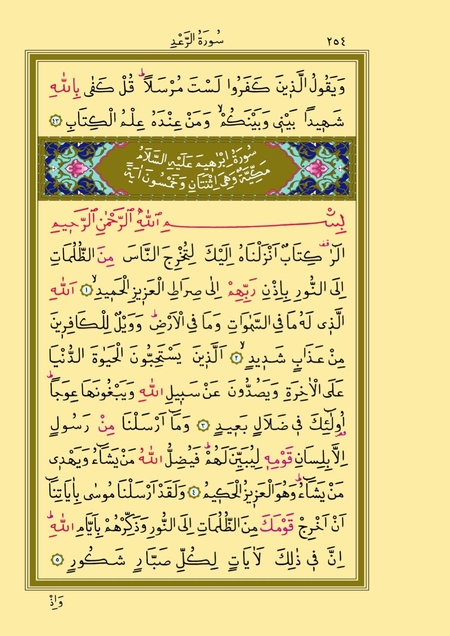 سُورَةُ الرَّعْدِ ٢٥٤
وَيَقُولُ الَّذ۪ينَ كَفَرُوا لَسْتَ مُرْسَلاًۜ قُلْ كَفٰى بِاللّٰهِ
شَه۪يداً بَيْن۪ي وَبَيْنَكُمْۙ وَمَنْ عِنْدَهُ عِلْمُ الْكِتَابِ ٤٣
سُورَةُ اِبْرٰه۪يمَ عَلَيْهِ السَّلَامُ
مَكِّيَّةٌ وَهِيَ اِثْنَتَانِ وَخَمْسُونَ اٰيَةً
بِسْمِ اللّٰهِ الرَّحْمٰنِ الرَّح۪يمِ
الٓرٰ۠ كِتَابٌ اَنْزَلْنَاهُ اِلَيْكَ لِتُخْرِجَ النَّاسَ مِنَ الظُّلُمَاتِ
اِلَى النُّورِ بِاِذْنِ رَبِّهِمْ اِلٰى صِرَاطِ الْعَز۪يزِ الْحَم۪يدِۙ ١ اَللّٰهِ
الَّذ۪ي لَهُ مَا فِي السَّمٰوَاتِ وَمَا فِي الْاَرْضِۜ وَوَيْلٌ لِلْكَافِر۪ينَ
مِنْ عَذَابٍ شَد۪يدٍۙ ٢ اَلَّذ۪ينَ يَسْتَحِبُّونَ الْحَيٰوةَ الدُّنْيَا
عَلَى الْاٰخِرَةِ وَيَصُدُّونَ عَنْ سَب۪يلِ اللّٰهِ وَيَبْغُونَهَا عِوَجاًۜ
اُو۬لٰٓئِكَ ف۪ي ضَلَالٍ بَع۪يدٍ ٣ وَمَٓا اَرْسَلْنَا مِنْ رَسُولٍ
اِلَّا بِلِسَانِ قَوْمِه۪ لِيُبَيِّنَ لَهُمْۜ فَيُضِلُّ اللّٰهُ مَنْ يَشَٓاءُ وَيَهْد۪ي
مَنْ يَشَٓاءُۜ وَهُوَ الْعَز۪يزُ الْحَك۪يمُ ٤ وَلَقَدْ اَرْسَلْنَا مُوسٰى بِاٰيَاتِنَٓا
اَنْ اَخْرِجْ قَوْمَكَ مِنَ الظُّلُمَاتِ اِلَى النُّورِ وَذَكِّرْهُمْ بِاَيَّامِ اللّٰهِۜ
اِنَّ ف۪ي ذٰلِكَ لَاٰيَاتٍ لِكُلِّ صَبَّارٍ شَكُورٍ ٥
وَاِذْ